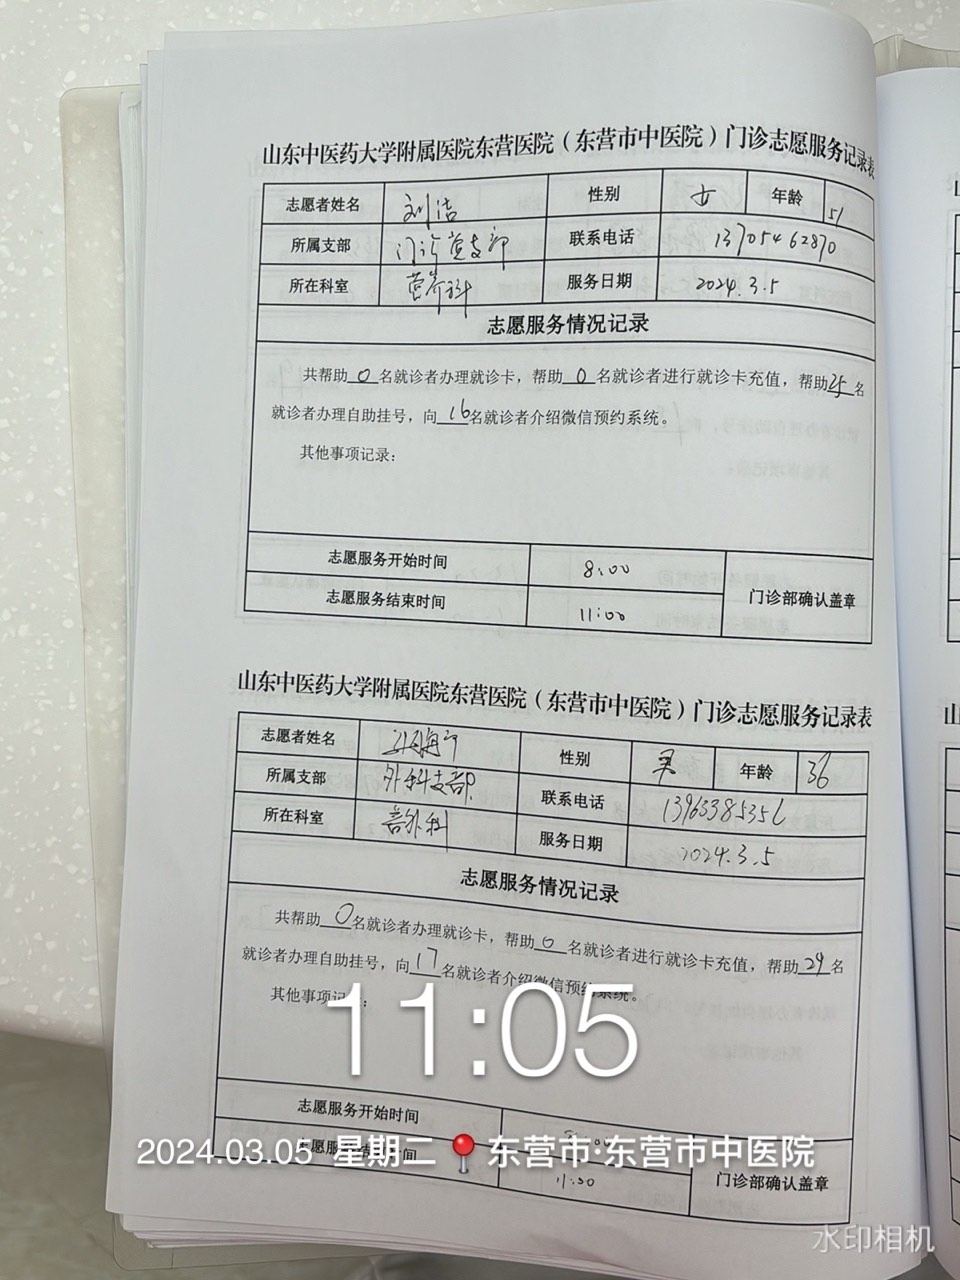 山东中医药大学附属医院东营医院（东营市中医院）门诊志愿服务记录表
志愿者姓名 刘洁 性别 女 年龄 51
所属支部 门诊党支部 联系电话 13705462870
所在科室 营养科 服务日期 2024.3.5
志愿服务情况记录
共帮助 0 名就诊者办理就诊卡，帮助 0 名就诊者进行就诊卡充值，帮助 25 名
就诊者办理自助挂号，向 16 名就诊者介绍微信预约系统。
其他事项记录：
志愿服务开始时间 8:00
志愿服务结束时间 11:00 门诊部确认盖章
山东中医药大学附属医院东营医院（东营市中医院）门诊志愿服务记录表
志愿者姓名 性别 男 年龄 36
所属支部 外科支部 联系电话
所在科室 普外科 服务日期 2024.3.5
志愿服务情况记录
共帮助 0 名就诊者办理就诊卡，帮助 0 名就诊者进行就诊卡充值，帮助 29 名
就诊者办理自助挂号，向 17 名就诊者介绍微信预约系统。
其他事项记录：
11:05
志愿服务开始时间
2024.03.05 星期二 东营市·东营市中医院
志愿服务结束时间 11:00 门诊部确认盖章
水印相机